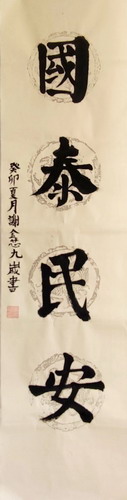 國泰民安
癸卯夏月謝念九歲書